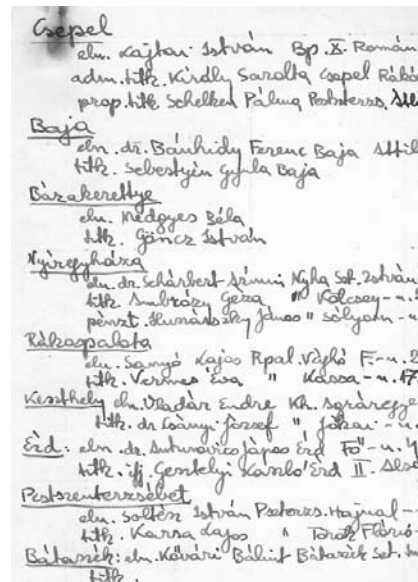 Csepel
eln. Kajtár István Bp. X. Román
adm. titk. Király Sarolta Csepel Rákó
prop. titk. Schelken Pálma Pestszerzs.
Baja
eln. dr. Bánhidy Ferenc Baja Attil
titk. Sebestyén Gyula Baja
Bázakerettye
eln. Medgyes Béla
titk. Göncz István
Nyíregyháza
eln. dr. Schárbert Ármin Nyha Szt. István
titk. Ambrózy Géza " Kölcsey-u.
pénzt. Hunászky János " Sólyom-u
Rákospalota
eln. Sanyó Lajos Rpal. F.-u. 2
titk. Vermes Éva " Kassa-u. 17
Keszthely eln. Vladár Endre Kh.
titk. dr. Csányi József " Jókai-u.
Érd: eln. dr. Antunovics János Érd Fő-u.
titk. ifj. Gerstelyi László Érd II. Alsó
Pestszenterzsébet
eln. Soltész István Hajnal-
titk. Karsa Lajos " Török Flóris-
Bátaszék: eln. Kővári Bálint Bátaszék Szt.
titk.